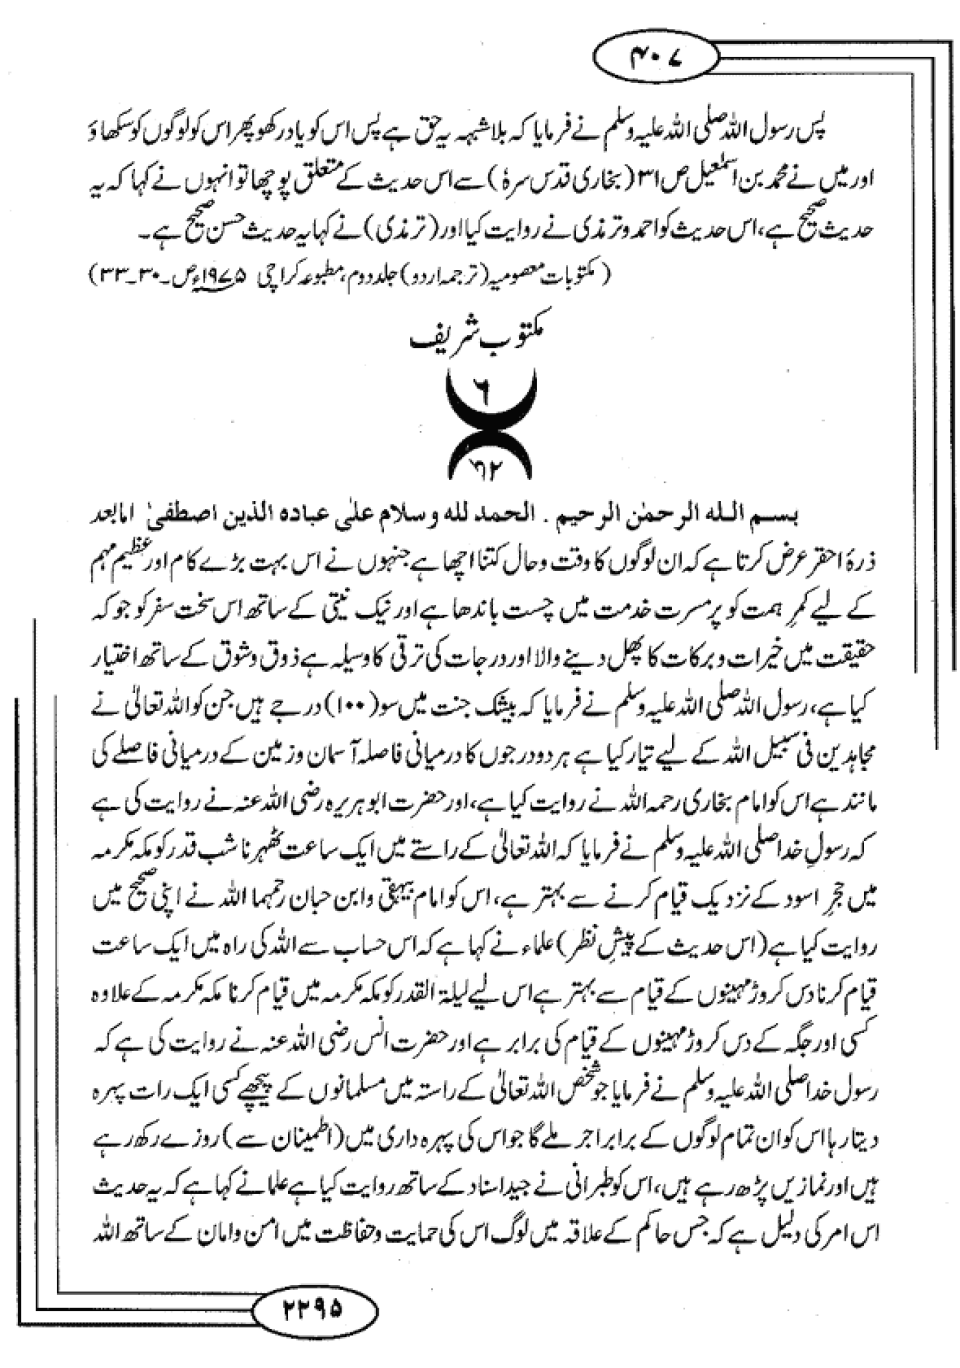 ۴۰۷
پس رسول اللہ صلی اللہ علیہ وسلم نے فرمایا کہ بلاشبہہ یہ حق ہے پس اس کو یاد رکھو پھر اس کو لوگوں کو سکھاؤ
اور میں نے محمد بن اسمٰعیل ص ۳۱ (بخاری قدس سرہٗ) سے اس حدیث کے متعلق پوچھا تو انہوں نے کہا کہ یہ
حدیث صحیح ہے، اس حدیث کو احمد و ترمذی نے روایت کیا اور (ترمذی) نے کہا یہ حدیث حسن صحیح ہے۔
(مکتوبات معصومیہ (ترجمہ اردو) جلد دوم، مطبوعہ کراچی ۱۹۷۵ء ص۔۳۰۔۳۳)
مکتوب شریف
۶
۹۲
بسم اللہ الرحمٰن الرحیم . الحمد للہ وسلام علیٰ عبادہ الذین اصطفیٰ امابعد
ذرۂ احقر عرض کرتا ہے کہ ان لوگوں کا وقت و حال کتنا اچھا ہے جنہوں نے اس بہت بڑے کام اور عظیم مہم
کے لیے کمرِ ہمت کو پرمسرت خدمت میں چست باندھا ہے اور نیک نیتی کے ساتھ اس سخت سفر کو جو کہ
حقیقت میں خیرات و برکات کا پھل دینے والا اور درجات کی ترقی کا وسیلہ ہے ذوق وشوق کے ساتھ اختیار
کیا ہے، رسول اللہ صلی اللہ علیہ وسلم نے فرمایا کہ بیشک جنت میں سو (۱۰۰) درجے ہیں جن کو اللہ تعالیٰ نے
مجاہدین فی سبیل اللہ کے لیے تیار کیا ہے ہر دو درجوں کا درمیانی فاصلہ آسمان وزمین کے درمیانی فاصلے کی
مانند ہے اس کو امام بخاری رحمہ اللہ نے روایت کیا ہے، اور حضرت ابوہریرہ رضی اللہ عنہ نے روایت کی ہے
کہ رسولِ خدا صلی اللہ علیہ وسلم نے فرمایا کہ اللہ تعالیٰ کے راستے میں ایک ساعت ٹھہرنا شب قدر کو مکہ مکرمہ
میں حجرِ اسود کے نزدیک قیام کرنے سے بہتر ہے، اس کو امام بیہقی وابن حبان رحمہما اللہ نے اپنی صحیح میں
روایت کیا ہے (اس حدیث کے پیشِ نظر) علماء نے کہا ہے کہ اس حساب سے اللہ کی راہ میں ایک ساعت
قیام کرنا دس کروڑ مہینوں کے قیام سے بہتر ہے اس لیے لیلۃ القدر کو مکہ مکرمہ میں قیام کرنا مکہ مکرمہ کے علاوہ
کسی اور جگہ کے دس کروڑ مہینوں کے قیام کی برابر ہے اور حضرت انس رضی اللہ عنہ نے روایت کی ہے کہ
رسول خدا صلی اللہ علیہ وسلم نے فرمایا جو شخص اللہ تعالیٰ کے راستہ میں مسلمانوں کے پیچھے کسی ایک رات پہرہ
دیتا رہا اس کو ان تمام لوگوں کے برابر اجر ملے گا جو اس کی پہرہ داری میں (اطمینان سے) روزے رکھ رہے
ہیں اور نمازیں پڑھ رہے ہیں، اس کو طبرانی نے جید اسناد کے ساتھ روایت کیا ہے علما نے کہا ہے کہ یہ حدیث
اس امر کی دلیل ہے کہ جس حاکم کے علاقہ میں لوگ اس کی حمایت وحفاظت میں امن وامان کے ساتھ اللہ
۲۲۹۵